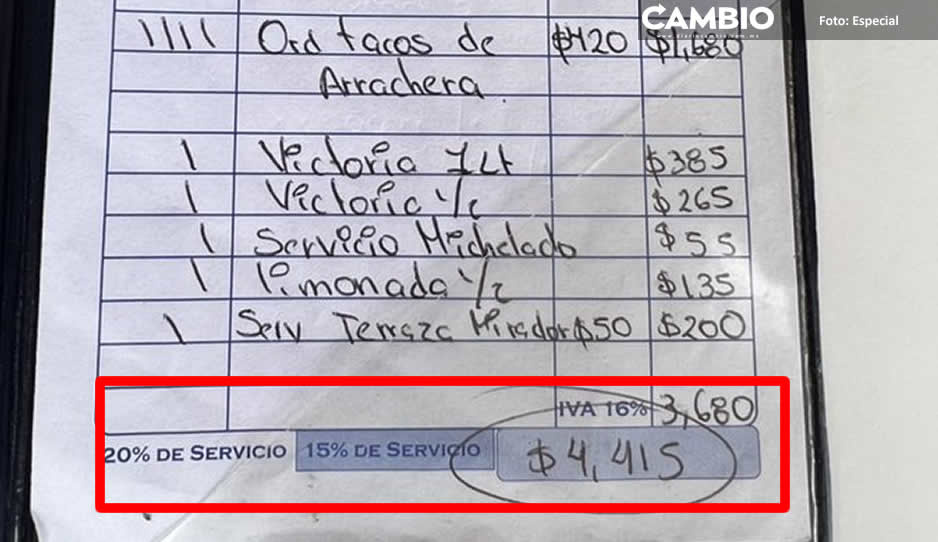 CAMBIO
Foto: Especial
www.diariocambio.com.mx
1111 Ord tacos de $420 $1,680
Arrachera.
1 Victoria 1Lt $385
1 Victoria 1/2 $265
1 Servicio Michelado $55
1 limonada 1/2 $135
1 Serv Terraza Mirador $50 $200
IVA 16% 3,680
20% DE SERVICIO 15% DE SERVICIO $4,415